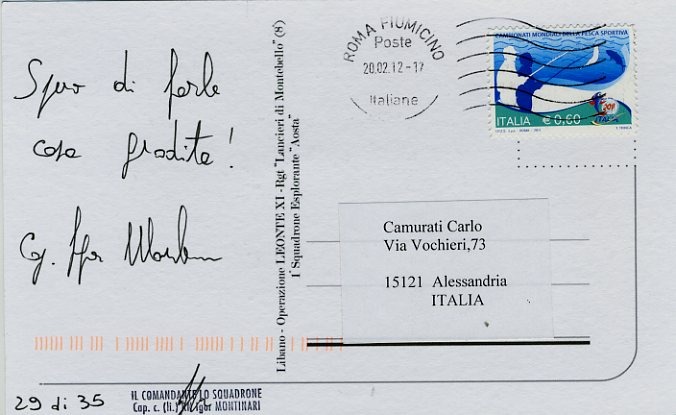 Spero di farle
cosa gradita!
Cap. Igor
Libano - Operazione LEONTE XI - Rgt "Lancieri di Montebello" (8)
1° Squadrone Esplorante "Aosta"
ROMA FIUMICINO
Poste
20.02.12-17
Italiane
CAMPIONATI MONDIALI DELLA PESCA SPORTIVA
2011
ITALIA
ITALIA € 0,60
Camurati Carlo
Via Vochieri,73
15121 Alessandria
ITALIA
29 di 35
IL COMANDANTE LO SQUADRONE
Cap. c. (li.) RN Igor MONTINARI